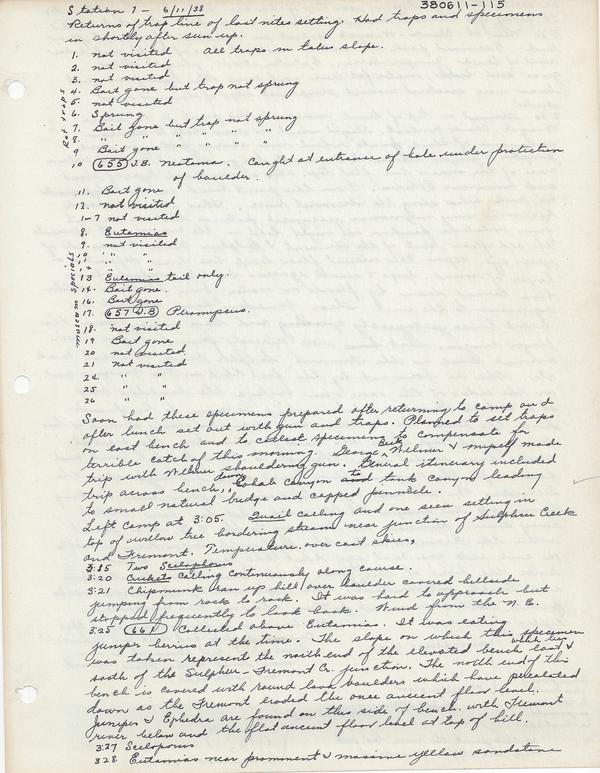 Station 1 - 6/11/38 380611-115
Returns of trap line of last nites setting. Had traps and specimens
in shortly after sun-up.
1. not visited All traps in talus slope.
2. not visited
3. not visited
4. Bait gone but trap not sprung
5. not visited
6. Sprung
7. Bait gone but trap not sprung
8. " " " " " "
9 Bait gone " " " "
10 655 J.B. Neotoma. Caught at entrance of hole under protection
of boulder.
11. Bait gone
12. not visited
Rat traps
1-7 not visited
8. Eutamias
9. not visited
10 " "
11 " "
12 " "
13 Eutamias tail only.
14. Bait gone.
16. Bait gone
17. 657 J.B Peromyscus.
18. not visited
19 Bait gone
20 not visited
21 not visited
24 " "
25 " "
26 " "
museum specials
Soon had these specimens prepared after returning to camp and
after lunch set out with gun and traps. Planned to set traps
on east bench and to collect specimens to compensate for
terrible catch of this morning. George Beck Wilmer & myself made
trip with Wilmer shouldering gun. General itinerary included
trip across bench, down Cohab canyon to tank canyon leading
to small natural bridge and capped pinnicle.
Left camp at 3:05. Quail calling and one seen setting in
top of willow tree bordering stream near junction of Sulpher Creek
and Fremont. Temperature, over cast skies,
3:15 Two Sceloporus
3:20 Crickets calling continuously along course.
3:21 Chipmunk ran up hill over boulder covered hillside
jumping from rock to rock. It was hard to approach but
stopped frequently to look back. Wind from the N.E.
3:25 661 Collected above Eutamias. It was eating
juniper berries at the time. The slope on which this specimen
was taken represent the north end of the elevated bench east &
south of the Sulpher-Fremont Cr. junction. The north end of this
bench is covered with round lava boulders which have percolated
down as the Fremont eroded the once ancient floor level.
Juniper & Ephedra are found on this side of bench with Fremont
river below and the flat ancient floor level at top of hill.
3:27 Sceloporus
3:28 Eutamias near prominent & massive yellow sandstone